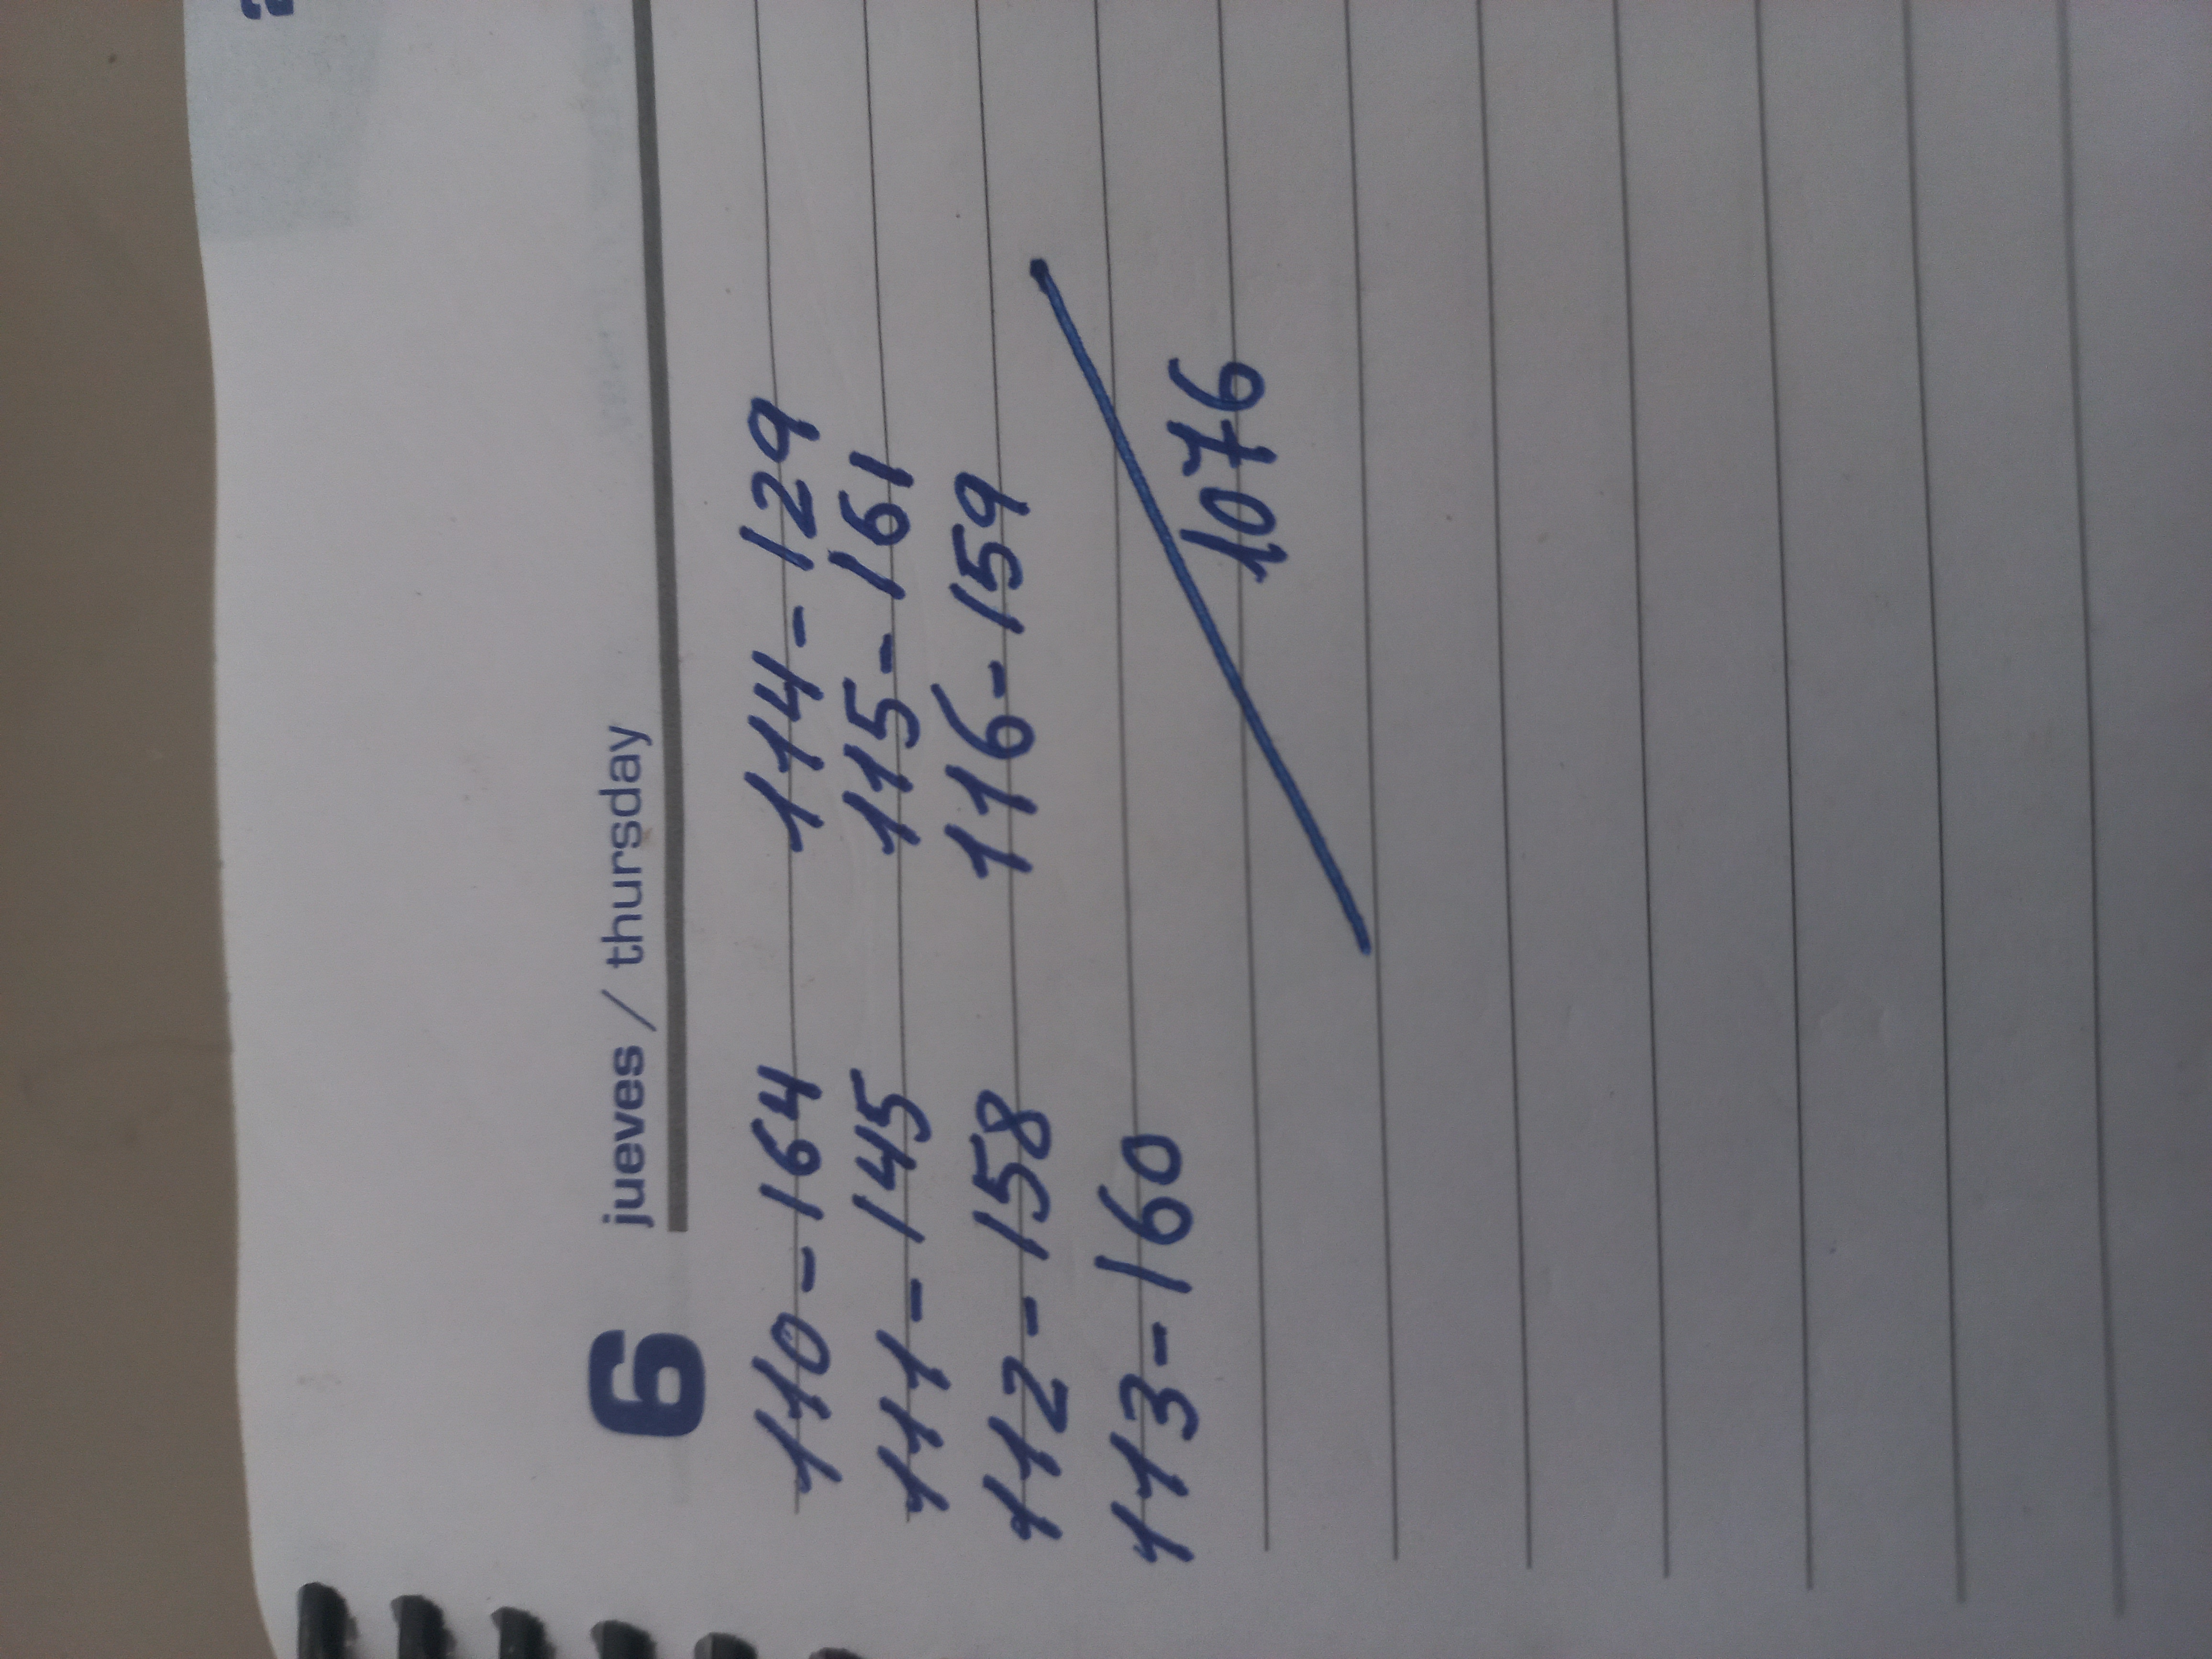 6 jueves / thursday
110-164 114-129
111-145 115-161
112-158 116-159
113-160
1076